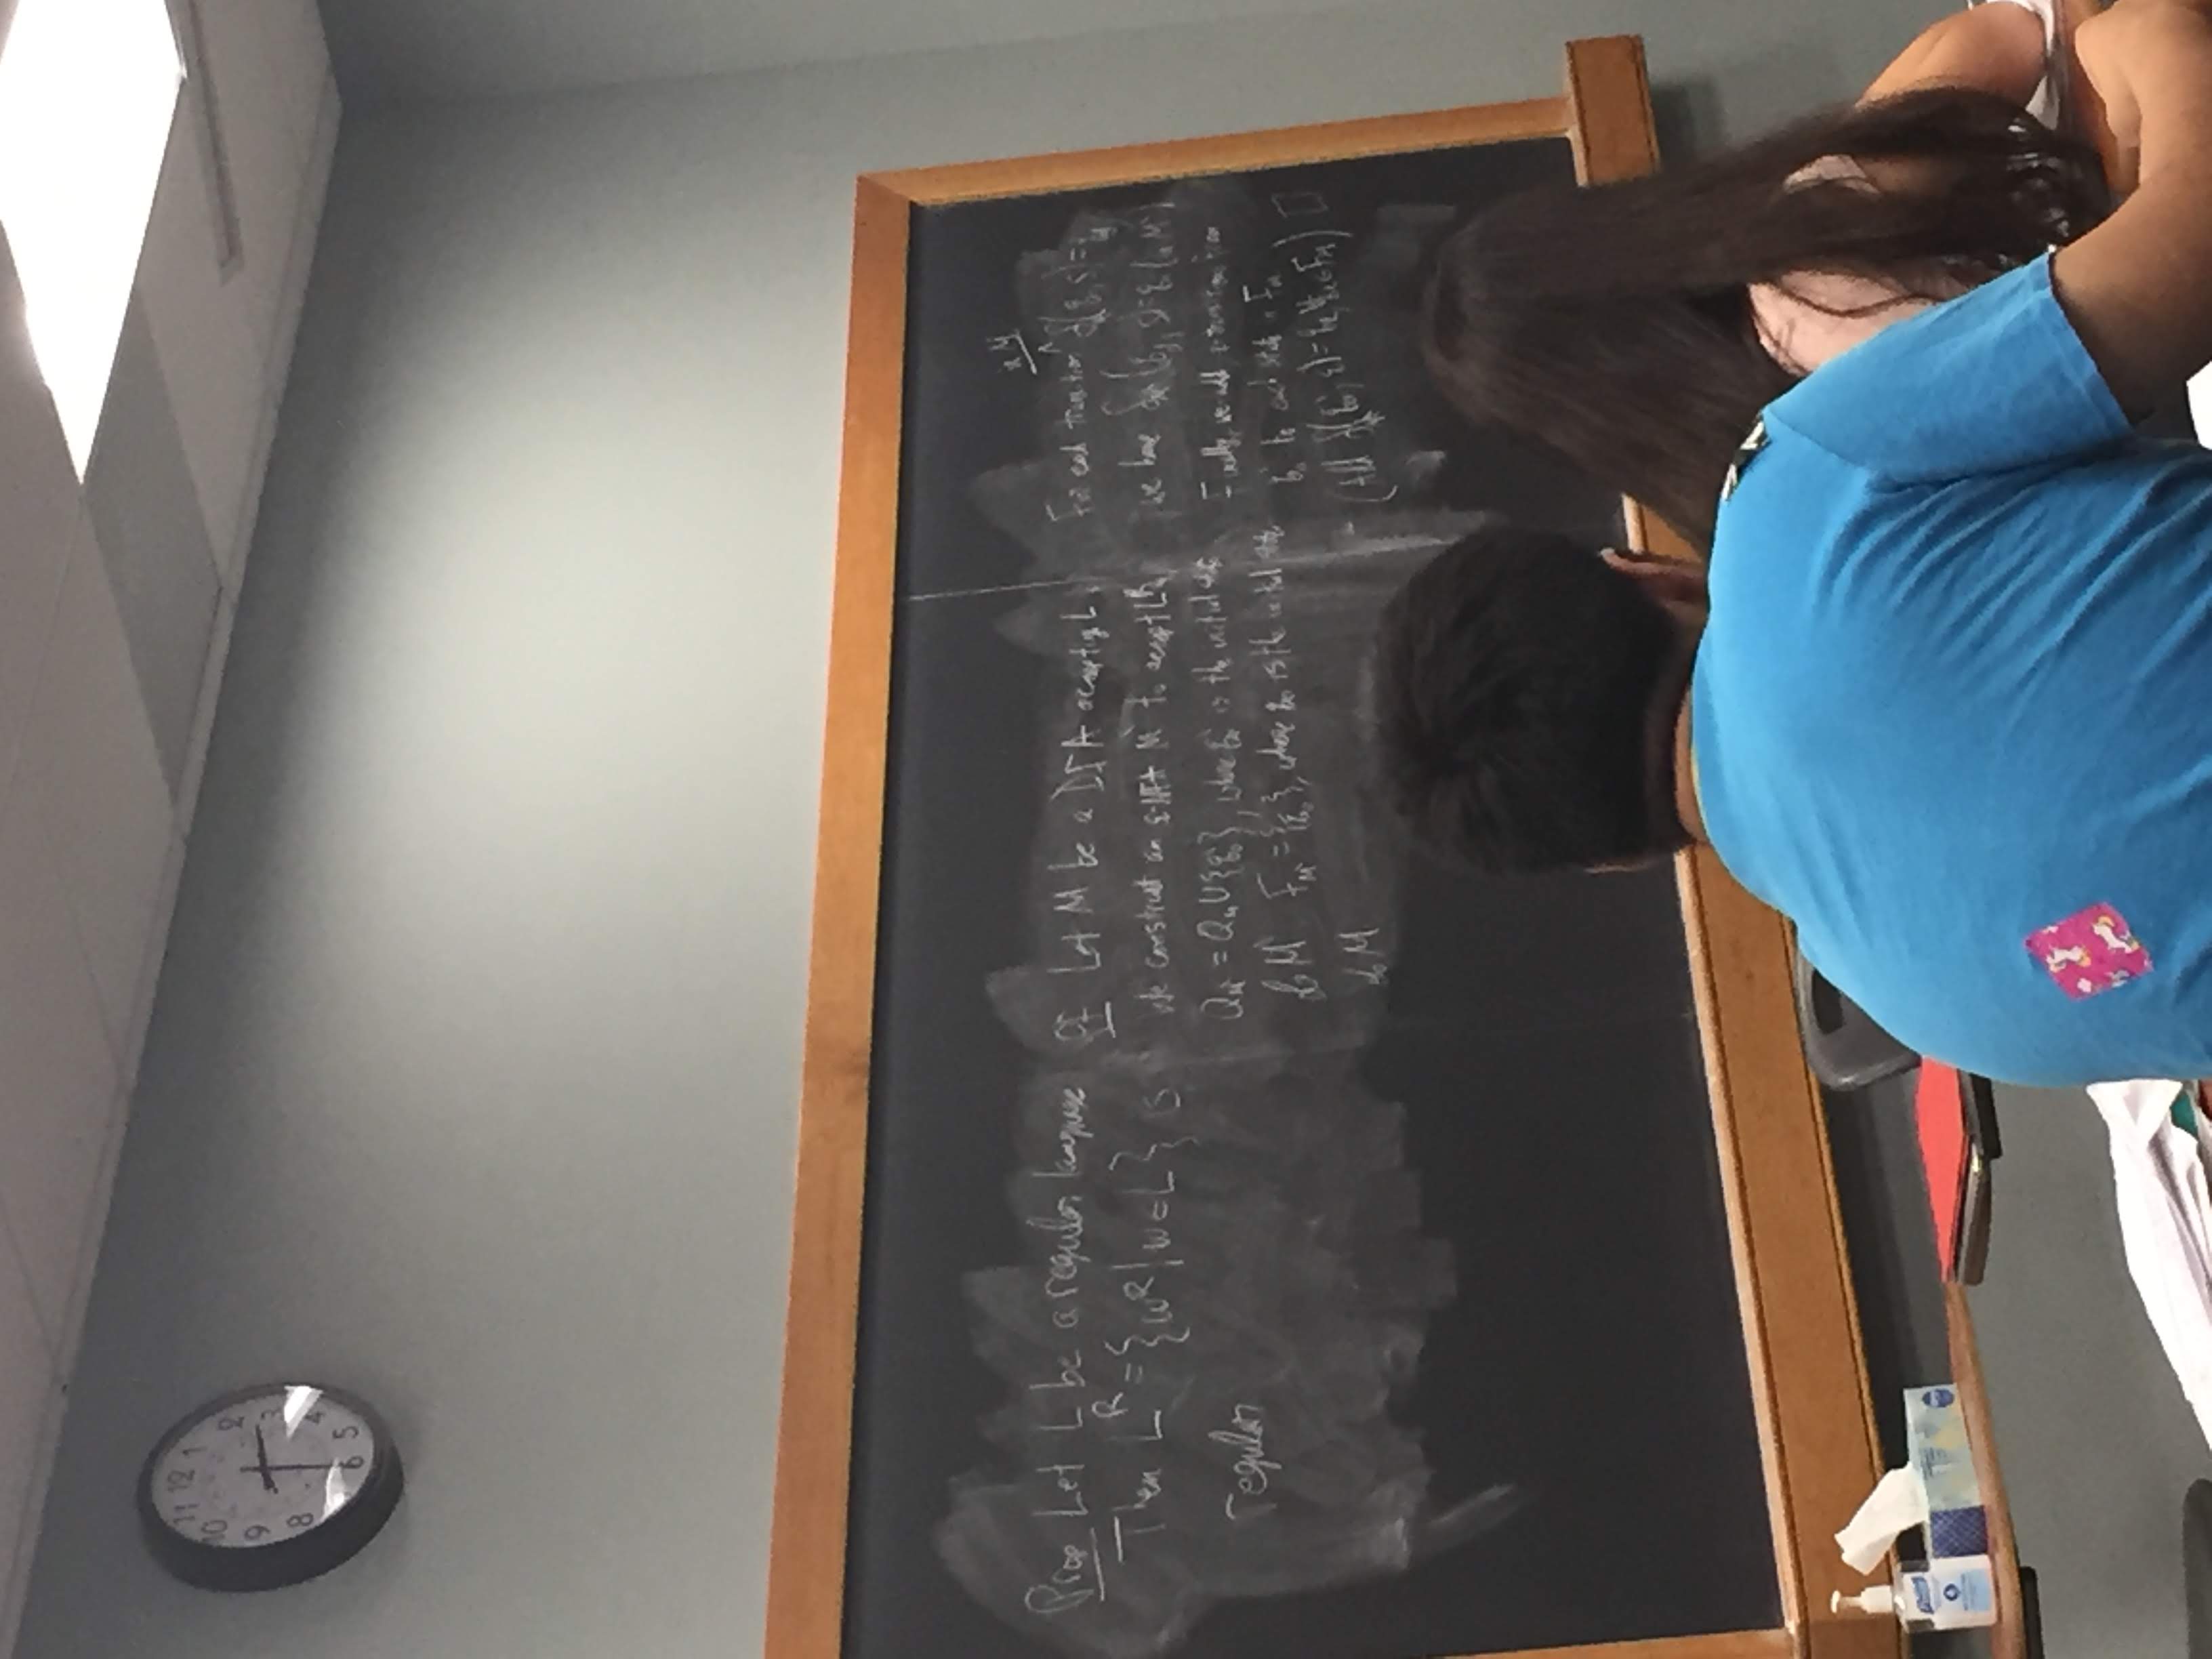 11 12 1
10 2
9 3
8 4
7 6 5
Prop Let L be a regular language
Then L^R = {w^R | w ∈ L} is
regular
Pf Let M be a DFA accepting L.
We construct an ε-NFA M' to accept L^R.
Q_M' = Q_M ∪ {q_0'}, where q_0' is the initial state
of M' F_M' = {q_0}, where q_0 is the initial state
of M
in M
For each transition ^ δ_M(q_i, s) = q_j
we have δ_M'(q_j, s) = q_i (in M')
Finally, we add ε-transitions from
q_0' to each state in F_M
(Add δ_M'(q_0', ε) = q_k ∀ q_k ∈ F_M) □
PURELL